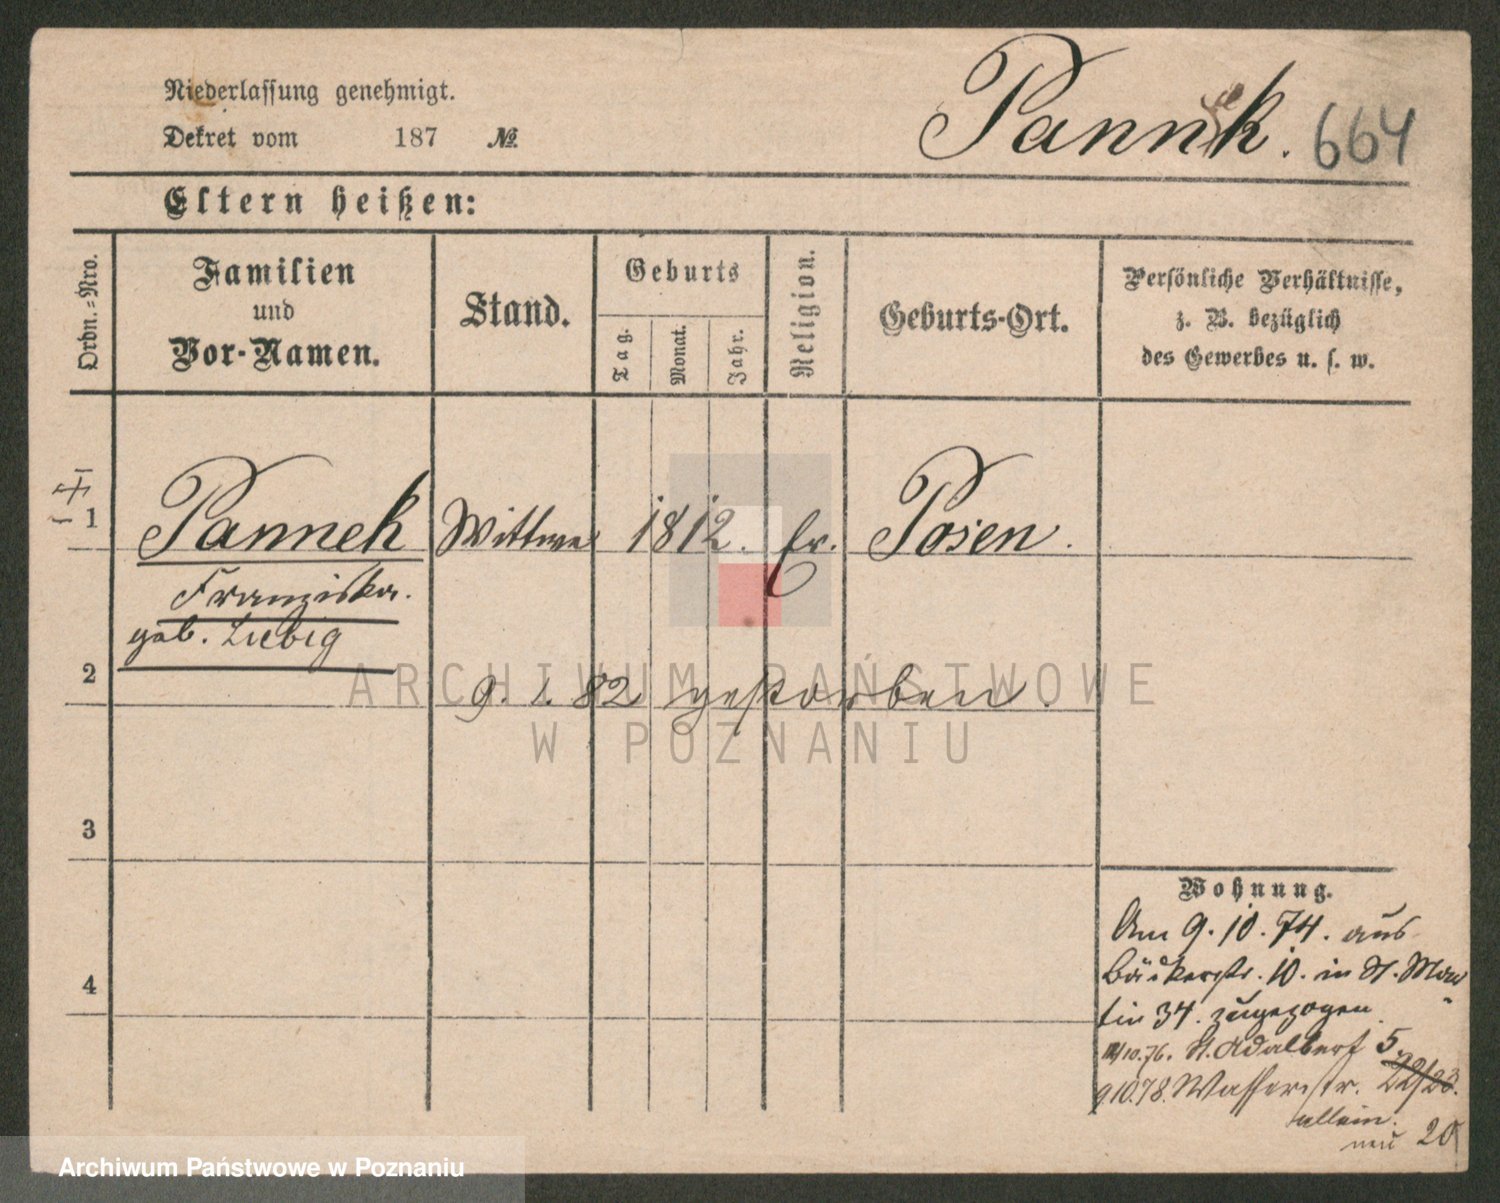 Niederlassung genehmigt.
Dekret vom 187 №
Pannek. 664
Eltern heißen:
Ordn.-Nro.
Familien
und
Vor-Namen.
Stand.
Geburts
Tag.
Monat.
Jahr.
Religion.
Geburts-Ort.
Persönliche Verhältnisse,
z. B. bezüglich
des Gewerbes u. s. w.
1 Pannek Wittwe 1812. Posen.
Franziska.
geb. Liebig
2
9. 1. 82 gestorben.
3
4
Wohnung.
Am 9. 10. 74. aus
Bäckerstr. 10. in St. Mar
tin 34. zugezogen.
10.76. St. Adalbert 5.
9.10.78. Wasserstr. 22/23.
allein.
neu 20
ARCHIWUM PAŃSTWOWE
W POZNANIU
Archiwum Państwowe w Poznaniu